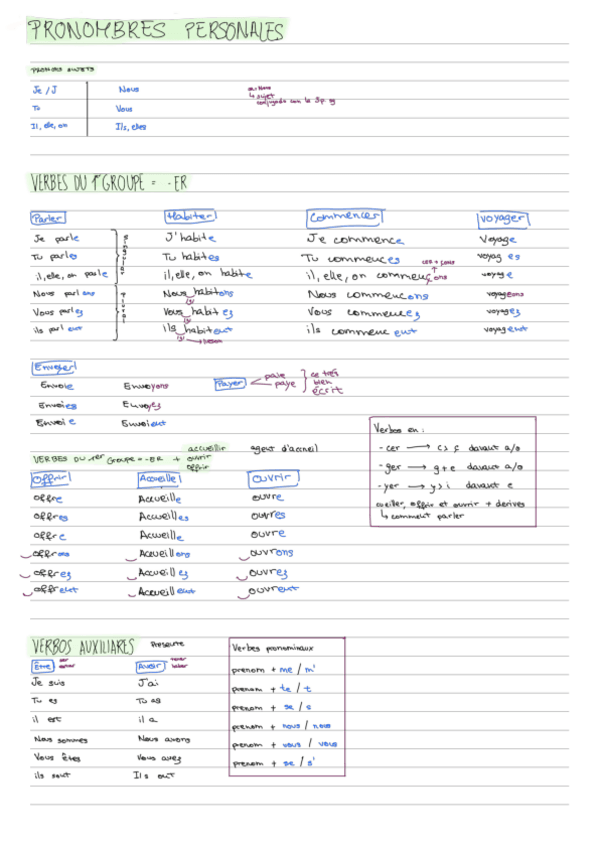 PRONOMBRES PERSONALES
PRONOMS SUJETS
Je / J' Nous
Tu Vous
Il, elle, on Ils, elles
on = Nous
↳ sujet
conjugado con la 3p sg
VERBES DU 1ᵉʳ GROUPE = -ER
Parler Habiter Commencer Voyager
Je parle J'habite Je commence Voyage
Tu parles Tu habites Tu commences voyages
il, elle, on parle il, elle, on habite il, elle, on commence voyage
Nous parlons Nous habitons Nous commençons voyageons
Vous parlez Vous habitez Vous commencez voyagez
ils parlent ils habitent ils commencent voyagent
Singular
Plural
Envoyer
Envoie Envoyons
Envoies Envoyez
Envoie Envoient
Payer
paie
paye
ce très
bien
écrit
Verbos en:
-cer → c > ç davant a/o
-ger → g+e davant a/o
-yer → y > i davant e
cueiller, offrir et ouvrir + dérivés
↳ comment parler
VERBES DU 1er Groupe = -ER +
accueillir
ouvrir
offrir
agent d'accueil
Offrir Accueille Ouvrir
offre Accueille ouvre
offres Accueilles ouvres
offre Accueille ouvre
offrons Accueillons ouvrons
offrez Accueillez ouvrez
offrent Accueillent ouvrent
VERBOS AUXILIARES Présente
Être Avoir
Je suis J'ai
Tu es Tu as
il est il a
Nous sommes Nous avons
Vous êtes Vous avez
ils sont Ils ont
Verbes pronominaux
prenom + me / m'
prenom + te / t
prenom + se / s
prenom + nous / nous
prenom + vous / vous
prenom + se / s'